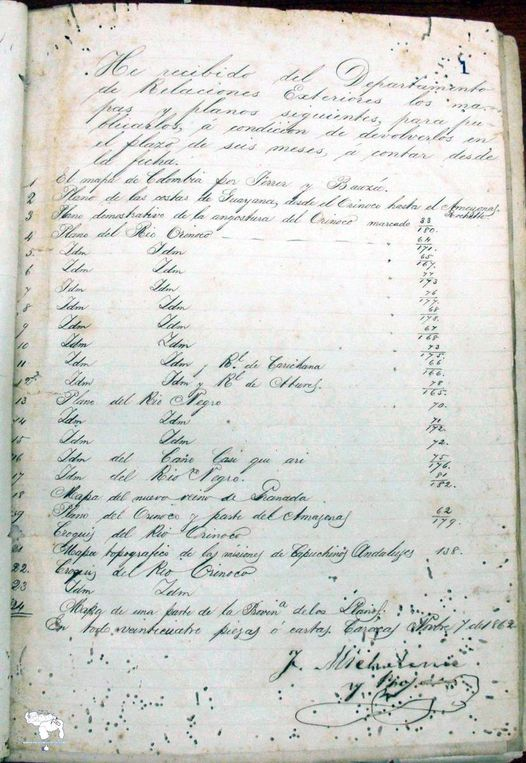 1
He recibido del Departamento
de Relaciones Exteriores los ma-
pas y planos siguientes, para pu-
blicarlos, á condicion de devolverlos en
el plazo de seis meses, á contar desde
la fecha.
1 El mapa de Colombia por Ferrer y Bauzá.
2 Plano de las costas de Guayana, desde el Orinoco hasta el Amazonas.
3 Plano demostrativo de la angostura del Orinoco marcado 33 180.
4 Plano del Rio Orinoco 64 171.
5 Idm Idm 65 167.
6 Idm Idm 77 173
7 Idm Idm 76 177.
8 Idm Idm 68 178.
9 Idm Idm 67 168
10 Idm Idm 73 175.
11 Idm Idm y Rl. de Carichana 66 166.
12 Idm Idm y Rl de Atures. 78 165.
13 Plano del Rio Negro 70.
14 Idm Idm 71 172.
15 Idm Idm 72.
16 Idm del Caño Casi qui ari 75 176.
17 Idm del Rio Negro. 81 182.
18 Mapa del nuevo reino de Granada
19 Plano del Orinoco y parte del Amazonas 62 179.
Croquis del Rio Orinoco
21 Mapa topografico de las misiones de Capuchinos Andaluzes 138.
22. Croquis del Rio Orinoco
23 Idm Idm
24 Mapa de una parte de la Provina de los Llanos.
En todo veinticuatro piezas ó cartas. Carácas 7 de 1862
J. Michelena
y